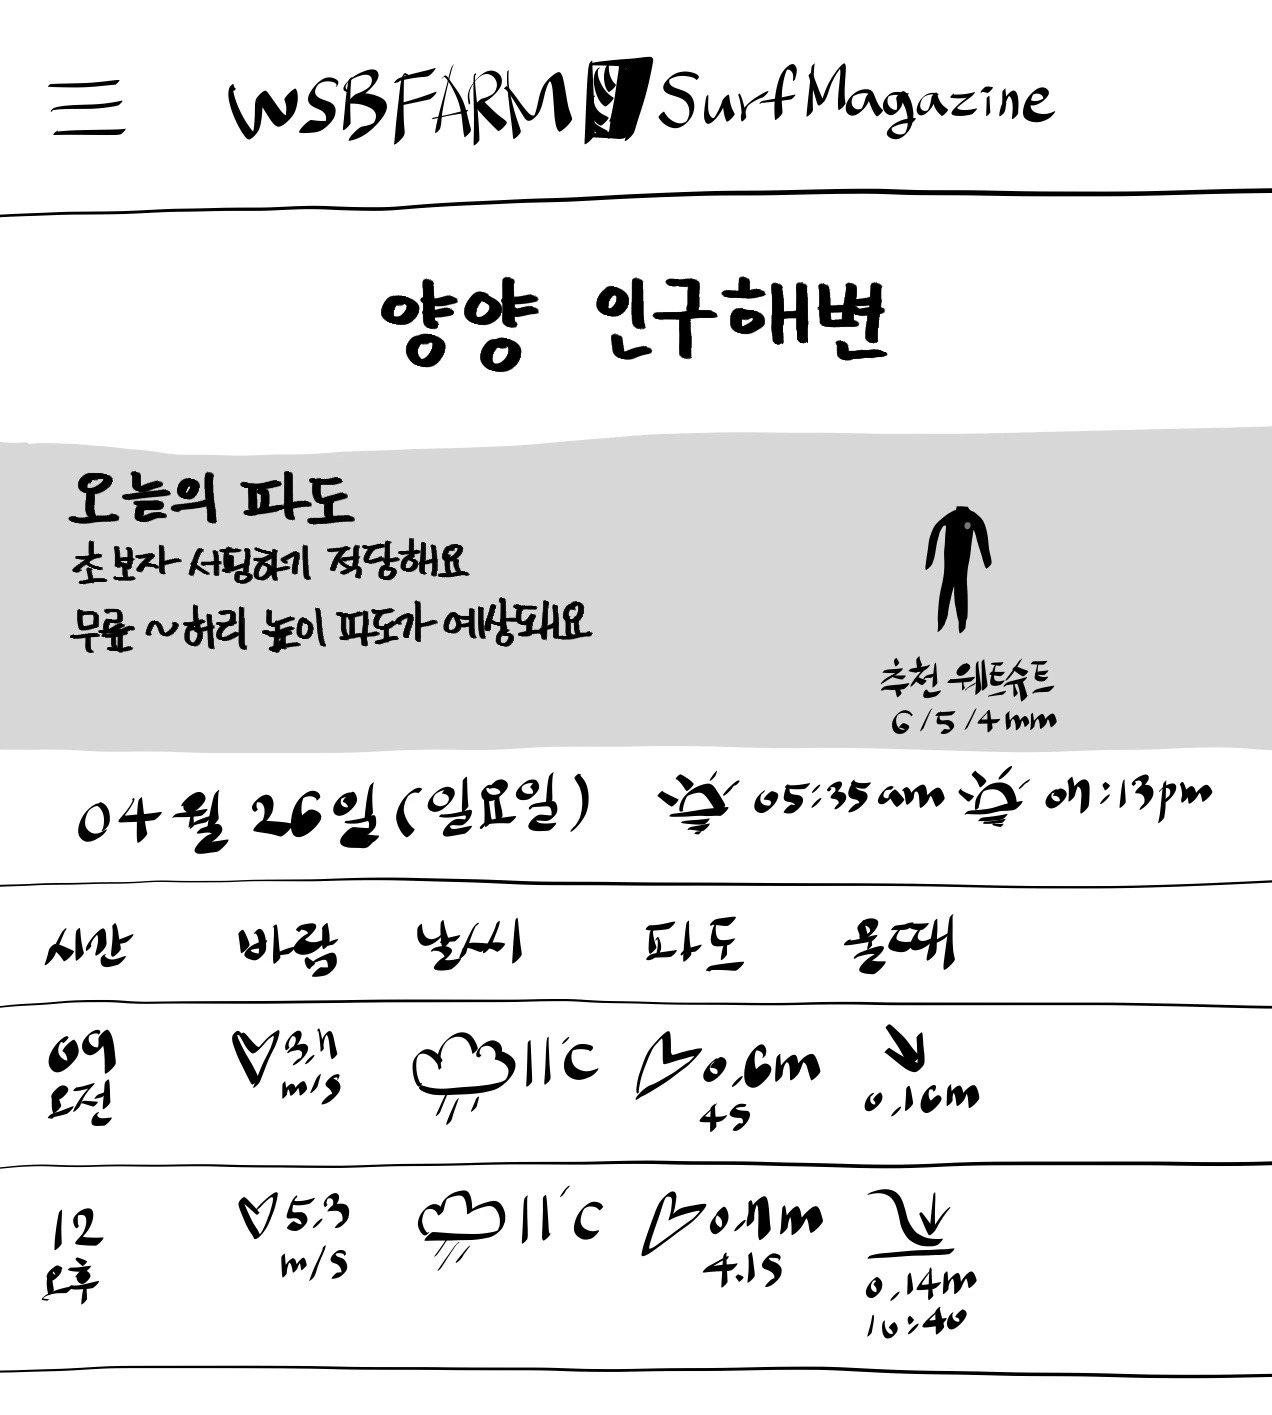 WSBFARM Surf Magazine
양양 인구해변
오늘의 파도
초보자 서핑하기 적당해요
무릎 ~ 허리 높이 파도가 예상돼요
추천 웨트슈트
6/5/4mm
04월 26일 (일요일) 05:35am 07:13pm
시간 바람 날씨 파도 물때
09 3.7 11°C 0.6m
오전 m/s 4s 0.16m
12 5.3 11°C 0.7m
오후 m/s 4.1s 0.14m
10:40